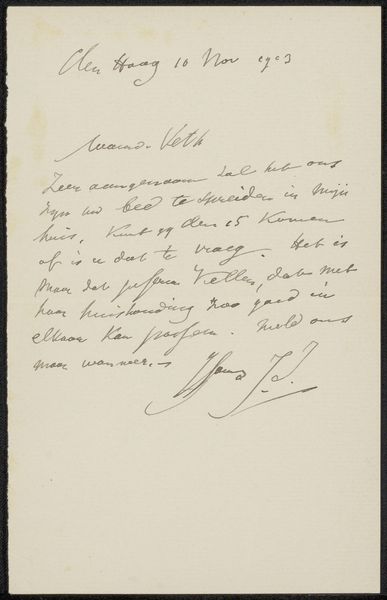 Den Haag 10 Nov 1903
Waarde Veth
Zeer aangenaam zal het ons
zijn uw bed te spreiden in mijn
huis. Kunt gij den 15 komen
of is u dat te vroeg. Het is
maar dat juffrouw Tellers, dat met
haar huishouding zoo goed in
elkaar kan passen. Meld ons
maar wanneer.
J. I.